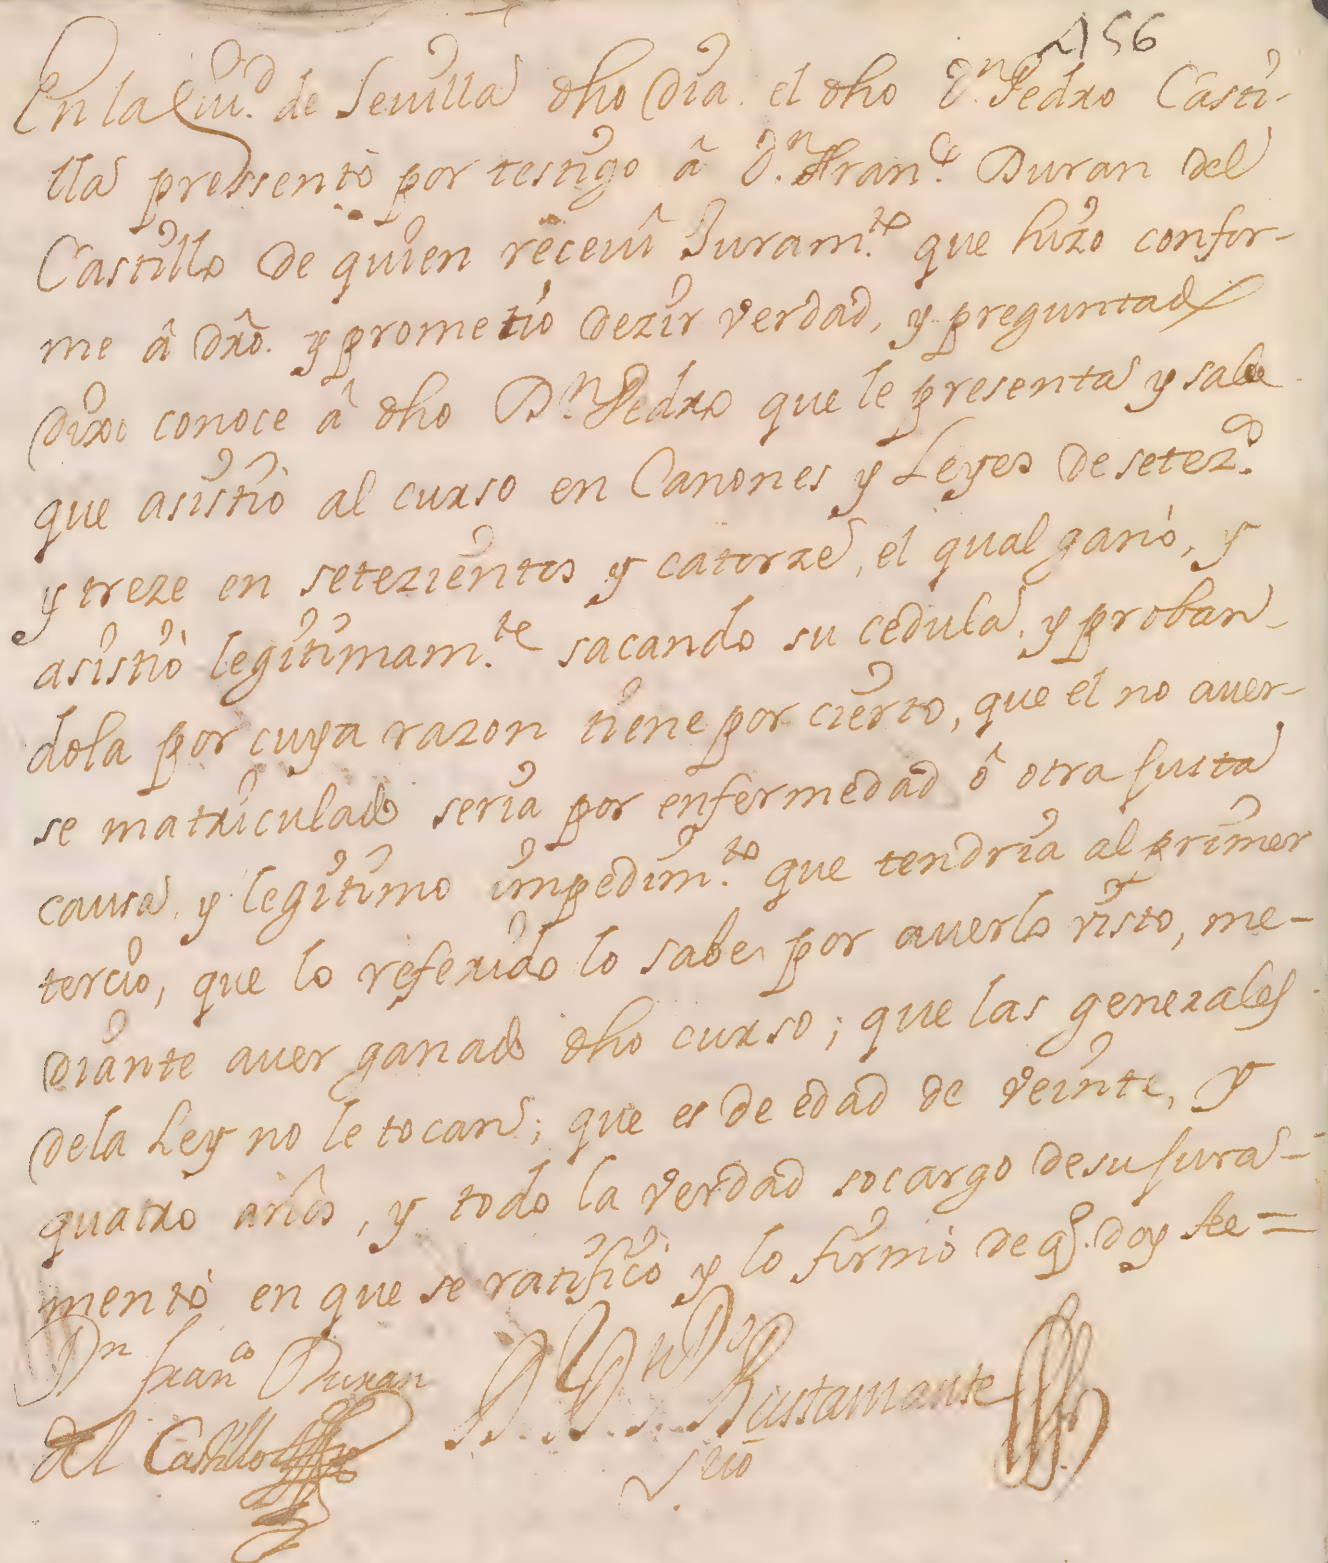 456
En la Ciud. de Sevilla dho dia el dho Dn. Pedro Casti-
lla pressento por testigo â Dn. Franco. Duran del
Castillo de quien receui Juramto. que hizo confor-
me â dro. y prometio dezir verdad, y preguntado
dixo conoce â dho Dn. Pedro que le presenta y sabe
que asistio al curso en Canones y Leyes de setezos.
y treze en setezientos y catorze, el qual ganò, y
asistiò legitimamte. sacando su cedula, y proban-
dola por cuya razon tiene por cierto, que el no auer-
se matriculado seria por enfermedad ô otra justa
causa, y legitimo impedimto. que tendria al primer
tercio, que lo referido lo sabe por auerlo visto, me-
diante auer ganado dho curso; que las generales
dela Ley no le tocan; que es de edad de veinte, y
quatro años, y todo la verdad socargo de su jura-
mentò en que se ratificò y lo firmò de q. doy fee=
Dn Franco Duran
del Castillo
Bustamante
srio